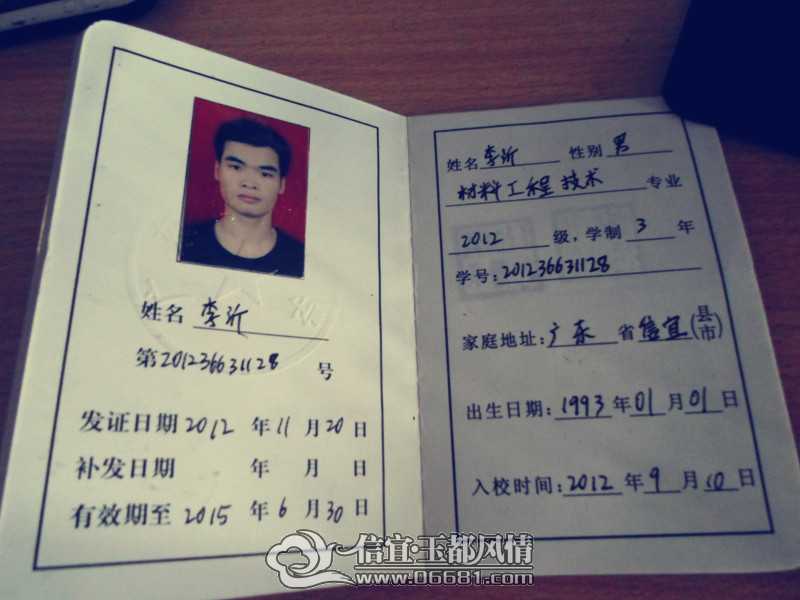 姓名 李沂
第201236631128 号
发证日期2012 年11 月20 日
补发日期 年 月 日
有效期至2015 年6 月30 日
姓名 李沂 性别 男
材料工程技术 专业
2012 级,学制 3 年
学号:201236631128
家庭地址:广东 省信宜(县市)
出生日期:1993年01月01日
入校时间:2012 年9 月10日
信宜·玉都风情
www.06681.com